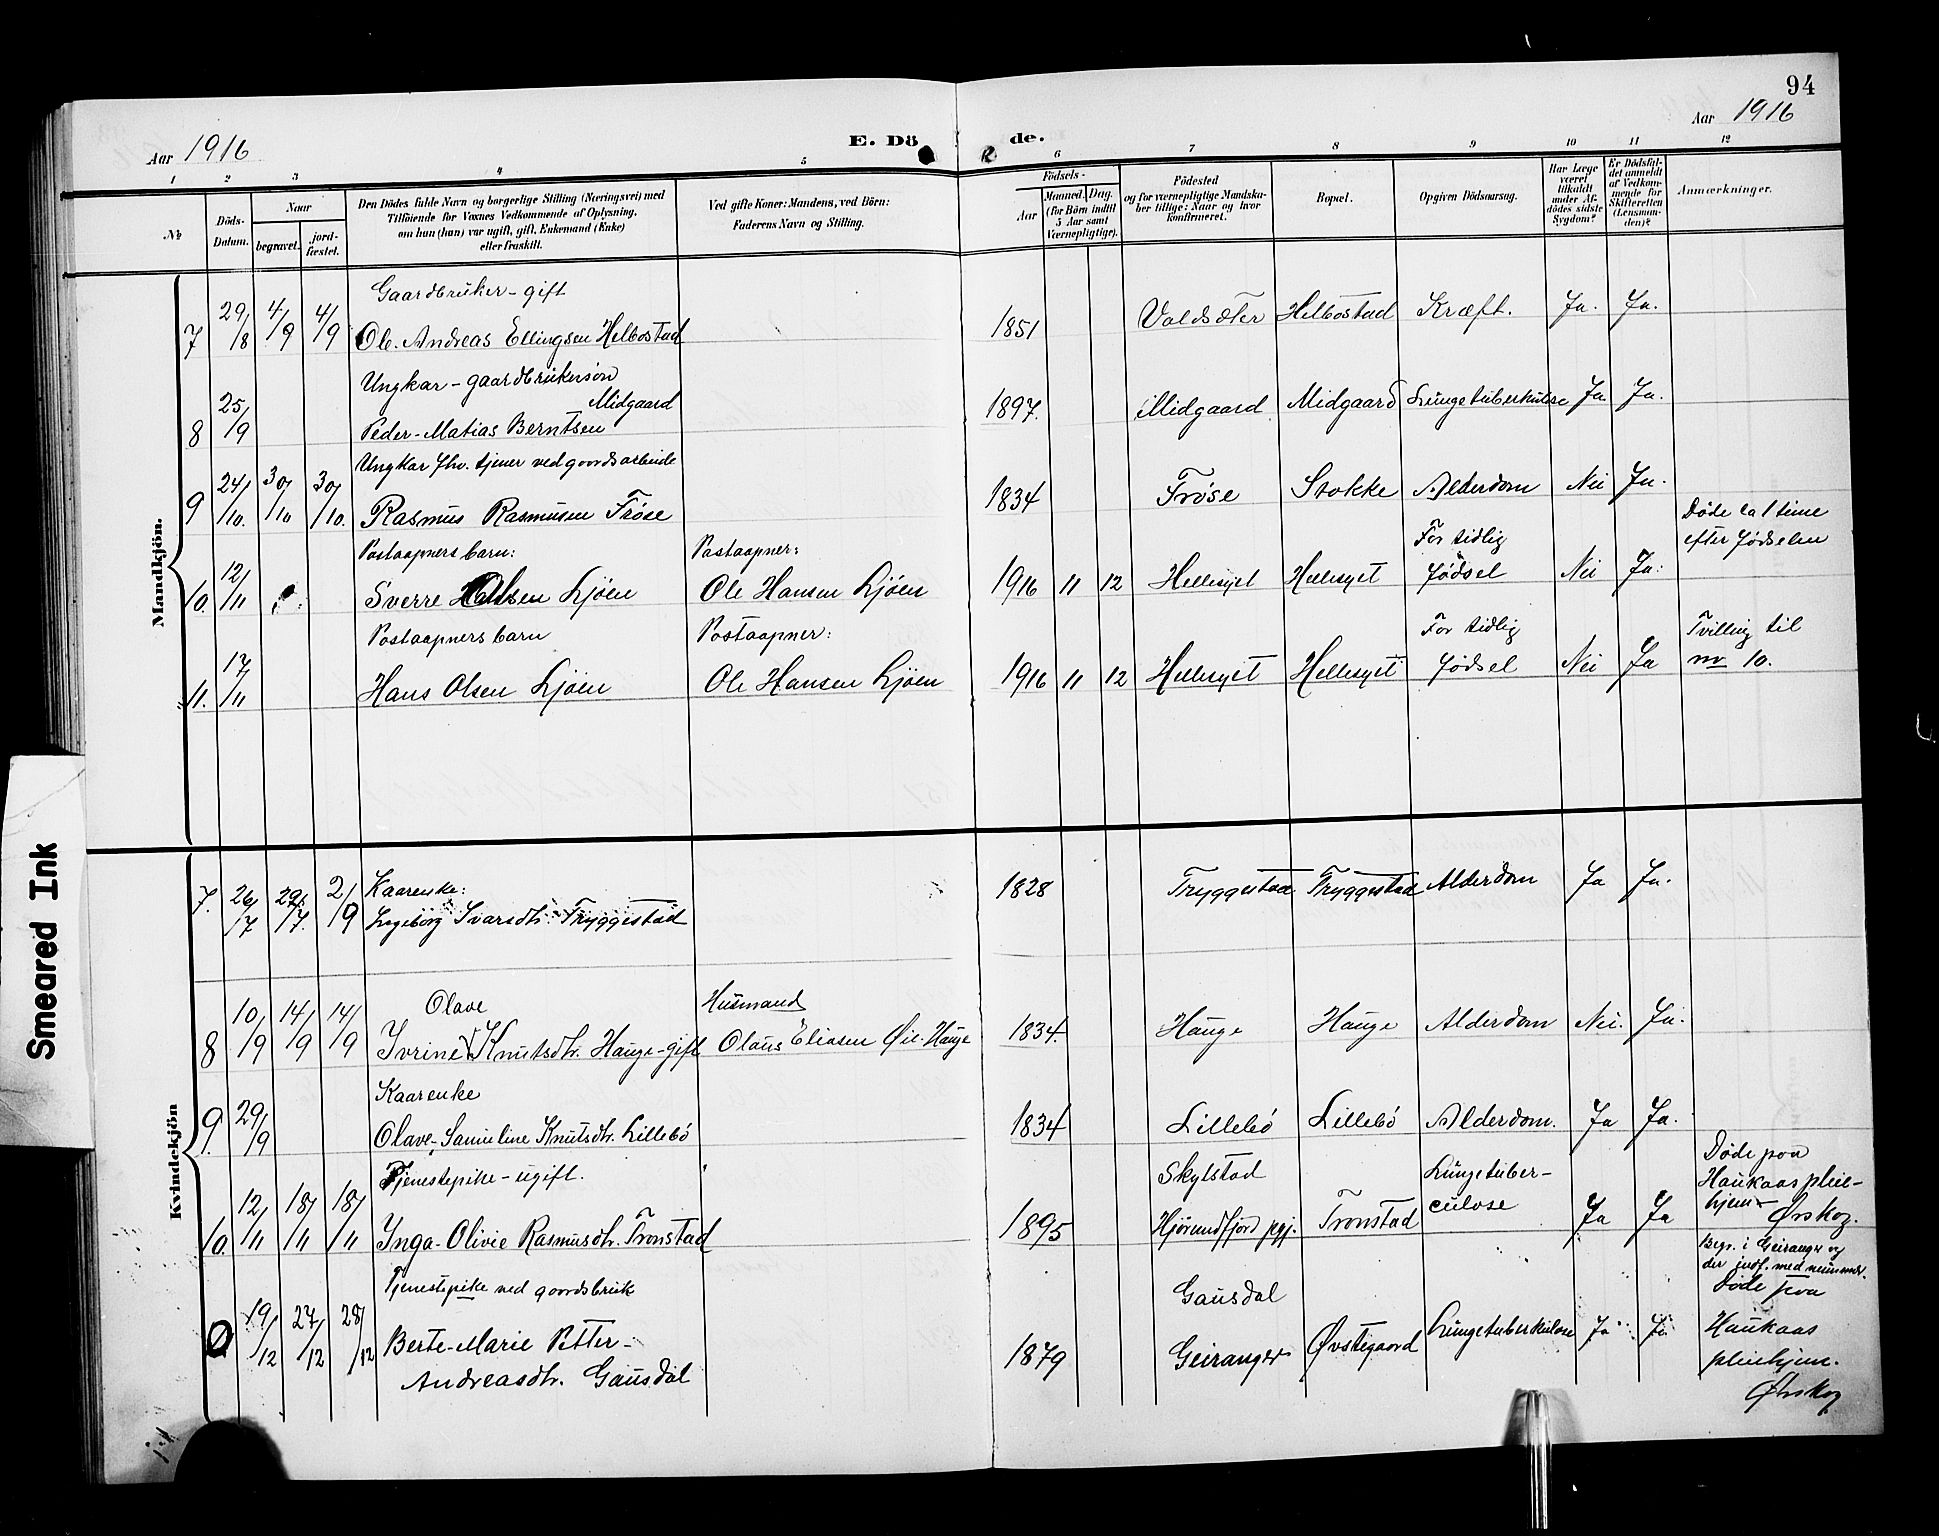 94
Aar 1916
E. Döde.
Aar 1916
1 2 3 4 5 6 7 8 9 10 11 12
№
Döds-Datum.
Naar
begravet.
jord-fæstet.
Den Dödes fulde Navn og borgerlige Stilling (Næringsvei) med
Tilföiende for Voxnes Vedkommende af Oplysning,
om hun (han) var ugift, gift, Enkemand (Enke)
eller fraskilt.
Ved gifte Koner: Mandens, ved Börn:
Faderens Navn og Stilling.
Födsels-
Aar
Maaned.
Dag.
(for Börn indtil
5 Aar samt
Værnepligtige).
Födested
og for værnepligtige Mandska-
ber tillige: Naar og hvor
konfirmeret.
Bopæl.
Opgiven Dödsaarsag.
Har Læge
været
tilkaldt
under Af-
dödes sidste
Sygdom?
Er Dödsfal-
det anmeldt
af Vedkom-
mende for
Skifteretten
(Lensman-
den)?
Anmærkninger.
Mandkjön.
Gaardbruker - gift
7 29/8 4/9 4/9 Ole Andreas Ellingsen Helbostad 1851 Voldsæter Helbostad Kræft. Ja. Ja.
Ungkar - gaardbrukersøn
Midgaard
8 25/9 Peder-Matias Berntsen 1897. Midgaard Midgaard Lungetuberkulose Ja Ja.
Ungkar fhv. tjener ved goordsarbeide
9 24/10. 30/10 30/10. Rasmus Rasmusen Frøse 1834 Frøse Stokke Alderdom Nei Ja.
Postaapners barn: Postaapner: For tidlig Døde ca 1 time
10. 12/11 Sverre Olsen Ljøen Ole Hansen Ljøen 1916 11 12 Hellesylt Hellesylt fødsel Nei Ja. efter fødselen
Postaapners barn Postaapner: For tidlig Tvilling til
11. 17/11 Hans Olsen Ljøen Ole Hansen Ljøen 1916 11 12 Hellesylt Hellesylt fødsel Nei Ja nr 10.
Smeared Ink
Kvindekjön
Kaarenke:
7. 26/7 29/7. 2/9 Ingeborg Ivarsdtr. Tryggestad 1828 Tryggestad Tryggestad Alderdom Ja Ja.
Olave Husmand
8 10/9 14/9 14/9 Ivrine Knutsdtr. Hauge - gift Olaus Eliasen Øie-Hauge 1834. Hauge Hauge Alderdom Nei. Ja.
Kaarenke
9. 29/9 Olave-Samueline Knutsdtr. Lillebø 1834 Lillebø Lillebø Alderdom. Ja Ja.
Tjenestepike - ugift. Skylstad Lungetuber- Døde paa
Haukaas pleie-
10. 12/11 18/11 18/11 Inga-Olivie Rasmusdtr. Tronstad 1895 Hjørundfjord pgj. Tronstad culose Ja Ja hjem - Ørskog.
Begr. i Geiranger og
der indf. med nummer.
Tjenestepike ved goordsbruk Gausdal Døde paa
0 19/12 27/12 28/12 Berte-Marie Petter- 1879 Geiranger Øvstegaard Lungetuberkulose Ja Ja Haukaas
Andreasdtr. Gausdal pleiehjem.
Ørskog